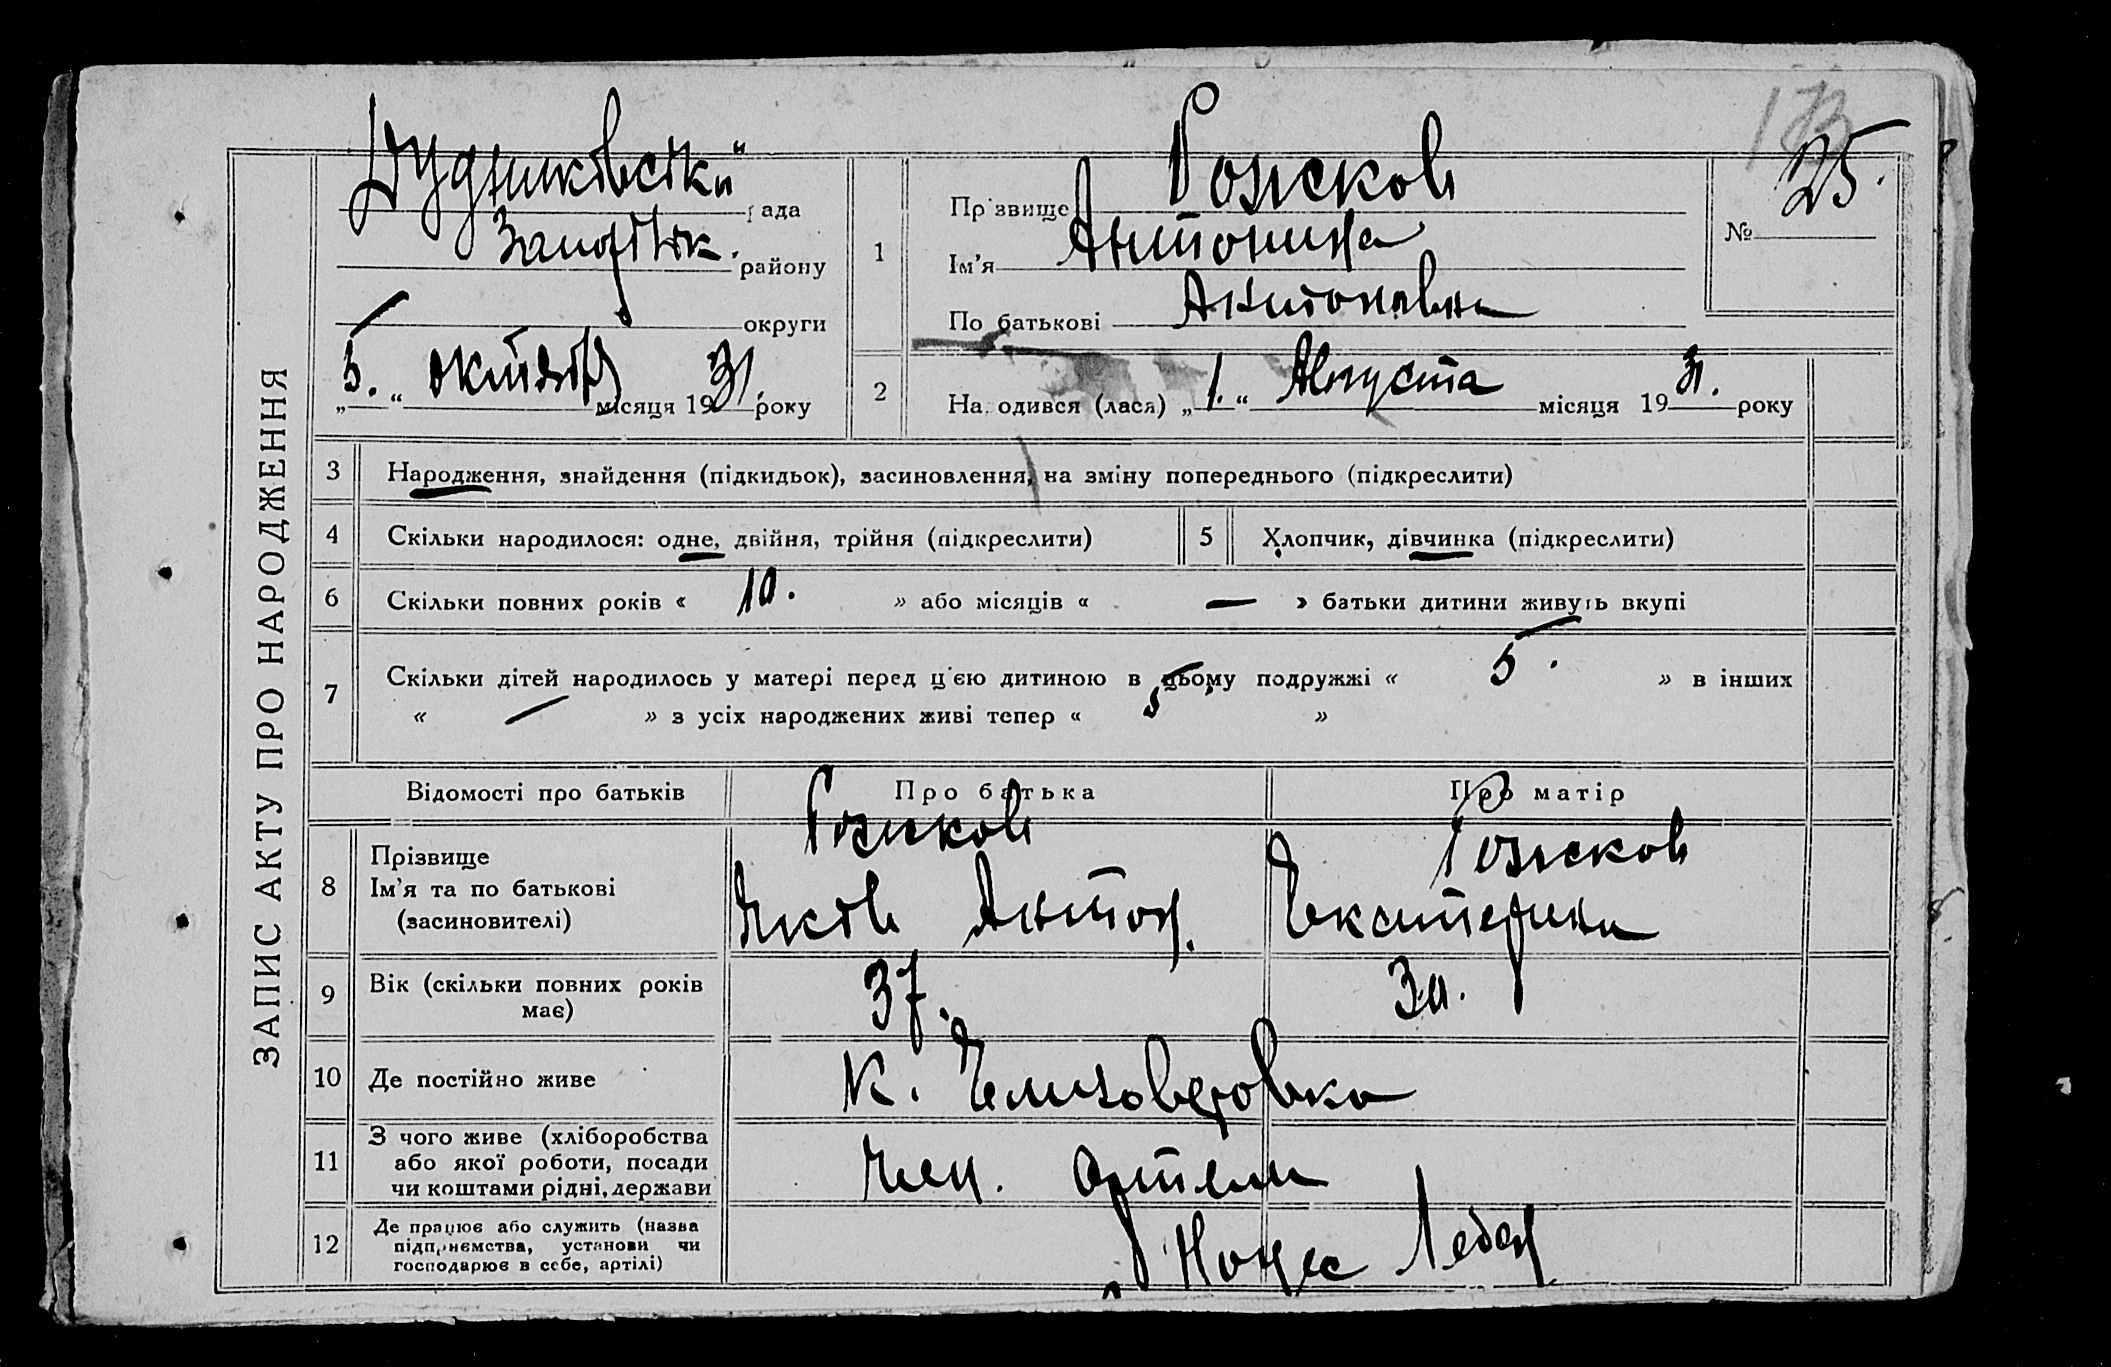 ЗАПИС АКТУ ПРО НАРОДЖЕННЯ
рада
району
округи
"5." октября місяця 1931. року
1
Прізвище Рожков
Ім'я Антонина
По батькові Антоновна
№ 25.
2
Народився (лася) "1." Августа місяця 1931. року
3 Народження, знайдення (підкидьок), засиновлення, на зміну попереднього (підкреслити)
4 Скільки народилося: одне, двійня, трійня (підкреслити)
5 Хлопчик, дівчинка (підкреслити)
6 Скільки повних років « 10. » або місяців « — » батьки дитини живуть вкупі
7 Скільки дітей народилось у матері перед ц'єю дитиною в цьому подружжі « 5. » в інших
« — » з усіх народжених живі тепер « 5. »
Відомості про батьків
Про батька
Про матір
8 Прізвище
Ім'я та по батькові
(засиновителі)
Рожков
Антон.
Рожков
Екатерина
9 Вік (скільки повних років
має)
37.
10 Де постійно живе
К. Елизаветовка
11 З чого живе (хліборобства
або якої роботи, посади
чи коштами рідні, держави
член. артели
12 Де працює або служить (назва
підприємства, установи чи
господарює в себе, артілі)